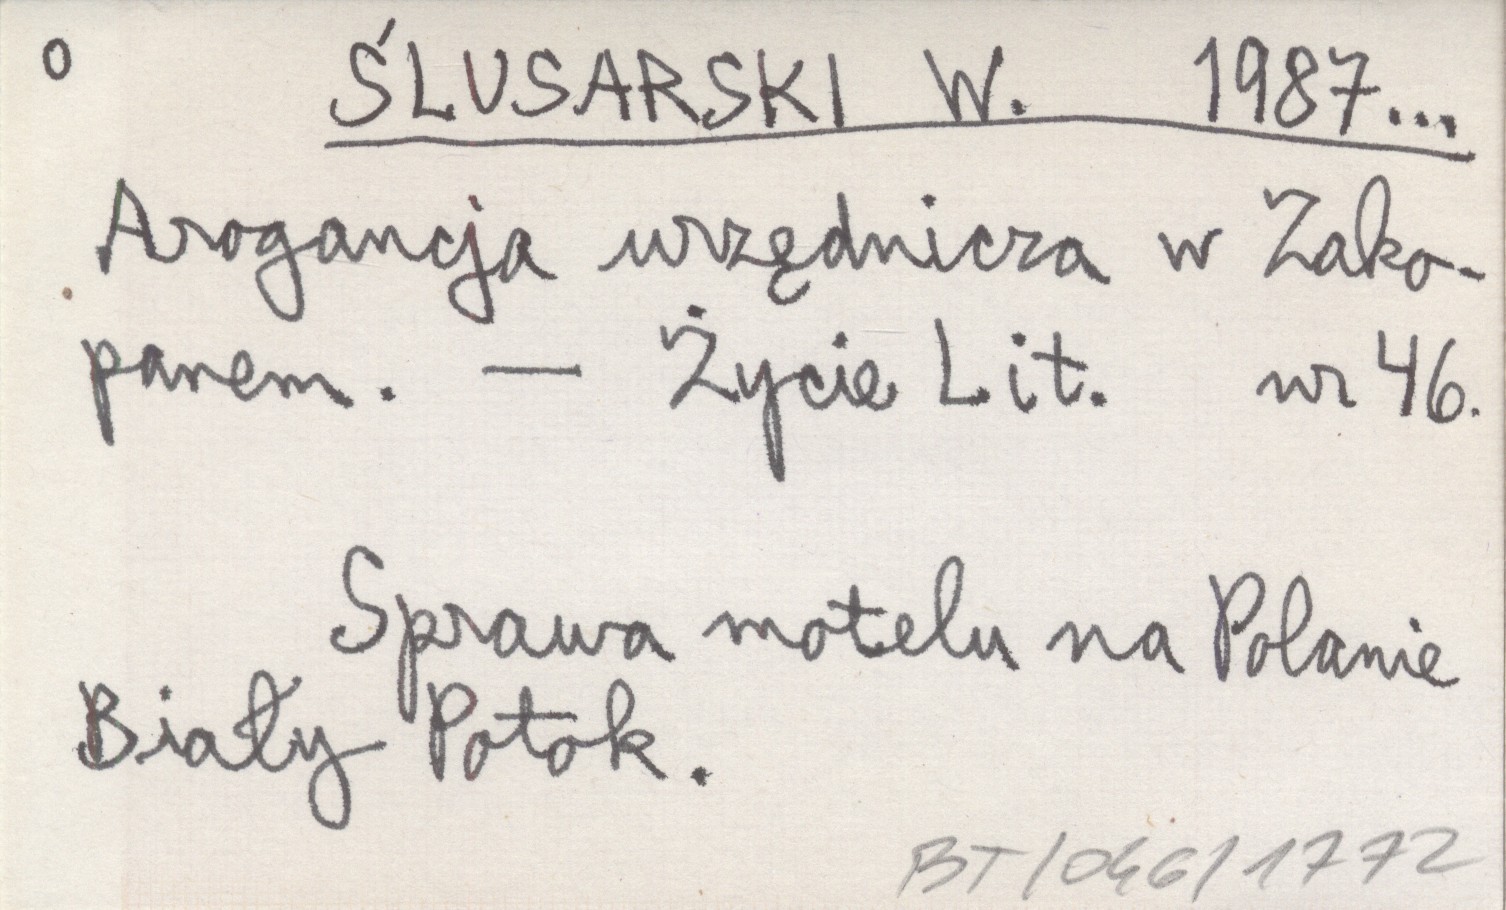 o ŚLUSARSKI W. 1987...
Arogancja urzędnicza w Zako-
panem. — Życie Lit. nr 46.
Sprawa motelu na Polanie
Biały Potok.
BT/046/1772